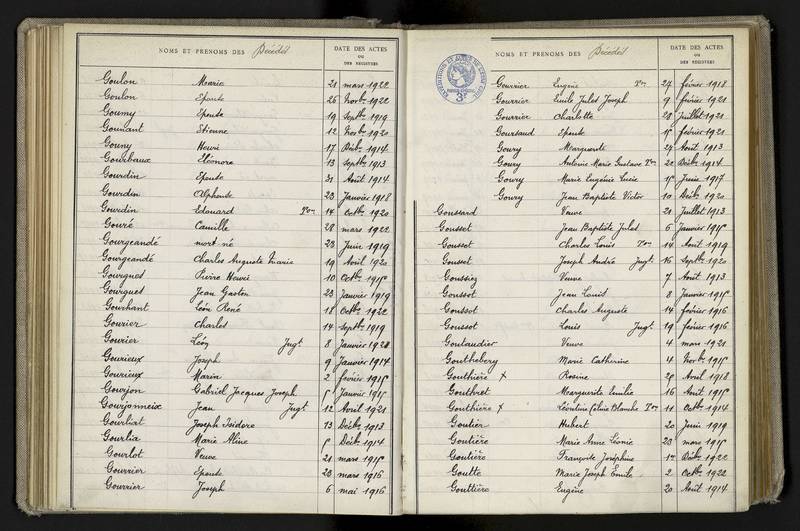 NOMS ET PRENOMS DES Décédés
DATE DES ACTES
OU
DES REGISTRES
Goulon Marie 21 mars 1922
Goulon Epouse 26 Novbre 1922
Goumy Epouse 19 Septbre 1919
Gounant Etienne 12 Novbre 1920
Gouny Henri 17 Décbre 1914
Gourbaux Eléonore 13 Septbre 1913
Gourdin Epouse 31 Août 1914
Gourdin Alphonse 23 Janvier 1918
Gourdin Edouard Ton 14 Octbre 1920
Gouré Camille 28 mars 1922
Gourgeandé mort né 23 Juin 1919
Gourgeandé Charles Auguste Marie 19 Avril 1920
Gourgues Pierre Henri 10 Octbre
Gourgues Jean Gaston 23 Janvier 1919
Gourhant Léon René 18 Octbre 1922
Gourier Charles 14 Septbre 1919
Gourier Léon Jugt 8 Janvier
Gourieux Joseph 9 Janvier 1914
Gourieux Marin 2 février
Gourjon Gabriel Jacques Joseph Janvier
Gourjonneix Jean Jugt 12 Avril 1921
Gourliat Joseph Isidore 13 Décbre 1913
Gourlia Marie Aline Décbre 1914
Gourlot Veuve 21 mars
Gourrier Epouse 23 mars 1916
Gourrier Joseph 6 mai 1916
NOMS ET PRENOMS DES Décédés
DATE DES ACTES
OU
DES REGISTRES
Gourrier Eugène Ton 27 février 1918
Gourrier Emile Jules Joseph 9 février 1921
Gourrier Charlotte 28 Juillet 1921
Goursaud Epouse février 1920
Goury Marguerite 29 Août 1913
Goury Antoine Marie Gustave Ton Décbre 1914
Goury Marie Eugénie Lucie Juin 1917
Goury Jean Baptiste Victor 10 Décbre 1920
Goussard Veuve 21 Juillet 1913
Gousset Jean Baptiste Jules 6 Janvier
Gousset Charles Louis Ton 14 Août 1919
Gousset Joseph André Jugt 16 Septbre 1920
Goussieg Veuve 7 Août 1913
Goussot Jean Louis 8 Janvier
Goussot Charles Auguste 14 février 1916
Goussot Louis Jugt 19 février 1916
Goutaudier Veuve 4 mars 1921
Gouthebery Marie Catherine 4 Novbre
Gouthière x Rosine Avril 1918
Gouthret Marguerite Emilie 16 Août
Gouthière x Léontine Celine Blanche Ton 11 Octbre 1914
Goutier Hubert 20 Juin 1919
Goutière Marie Anne Léonie 20 mars
Goutière Françoise Joséphine 1er Décbre 1922
Goutte Marie Joseph Emile 2 Octbre 1922
Gouttière Eugène 20 Août 1914